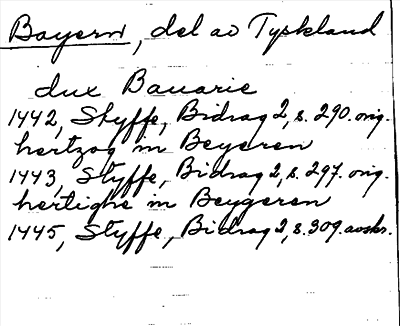 Bayern, del av Tyskland
dux Bauarie
1442, Styffe, Bidrag 2, s. 290. orig.
hertzog in Beyeren
1443, Styffe, Bidrag 2, s. 297. orig.
hertighe in Beygeren
1445, Styffe, Bidrag 2, s. 309. avskr.